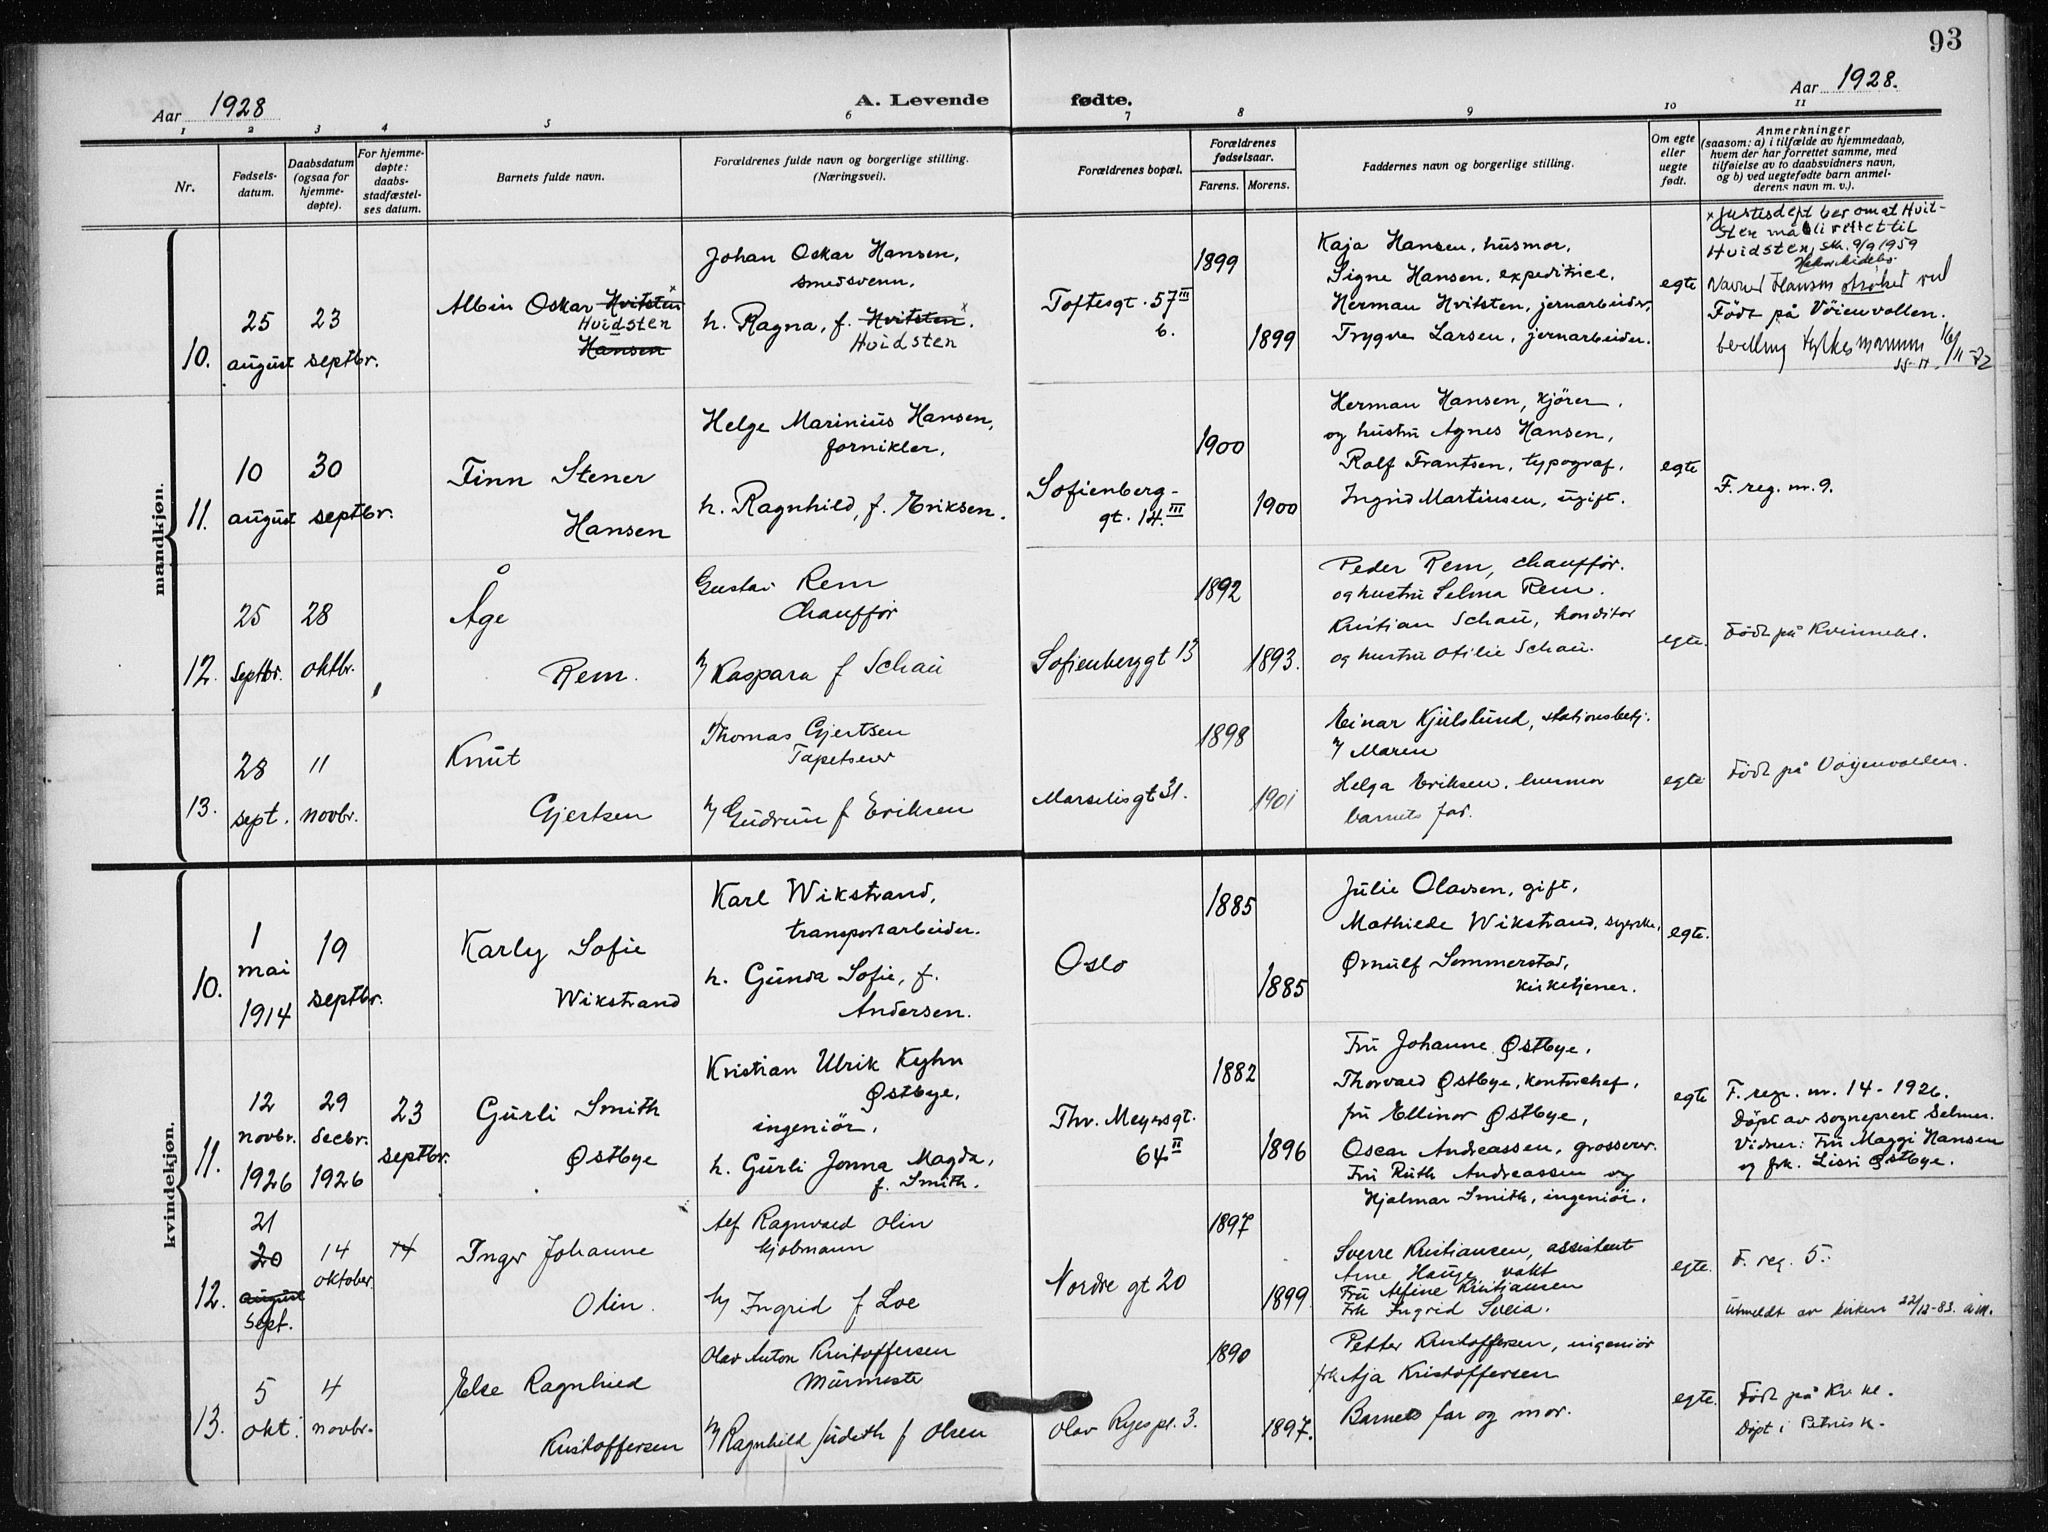 93
Aar 1928
A. Levende fødte.
Aar 1928.
1 2 3 4 5 6 7 8 9 10 11
Nr.
Fødsels-
datum.
Daabsdatum
(ogsaa for
hjemme-
døpte).
For hjemme-
døpte:
daabs-
stadfæstel-
ses datum.
Barnets fulde navn.
Forældrenes fulde navn og borgerlige stilling.
(Næringsvei).
Forældrenes bopæl.
Forældrenes
fødselsaar.
Farens. Morens.
Faddernes navn og borgerlige stilling.
Om egte
eller
uegte
født.
Anmerkninger
(saasom: a) i tilfælde av hjemmedaab,
hvem der har forrettet samme, med
tilføielse av to daabsvidners navn,
og b) ved uegtefødte barn anmel-
derens navn m. v.).
mandkjøn.
10.
25
august
23
septbr.
Albin Oskar Hvitsten x
Hvidsten
Hansen
Johan Oskar Hansen,
smedsvenn.
h. Ragna, f. Hvitsten x.
Hvidsten
Toftesgt. 57 III
b.
1899
1899
Kaja Hansen, husmor,
Signe Hansen, expeditrice,
Herman Hvitsten, jernarbeider,
Trygve Larsen, jernarbeider.
egte
x Justisdept ber om at Hvit-
sten må bli rettet til
Hvidsten, skr. 9/9 1959
Navnet Hansen strøket ved
Født på Vöienvollen.
bevilling fylkesmannen 16/11-72
11.
10
august
30
septbr.
Finn Stener
Hansen
Helge Marinius Hansen,
fornikler,
h. Ragnhild, f. Eriksen.
Sofienberg-
gt. 14. III
1900
1900
Herman Hansen, kjörer.
og hustru Agnes Hansen,
Rolf Frantsen, typograf,
Ingrid Martinsen, ugift.
egte
F. reg. nr. 9.
12.
25
septbr.
28
oktbr.
Åge
Rem.
Gustav Rem
Chauffør
h/ Kaspara f Schau
Sofienberggt 13
1892
1893.
Peder Rem, chauffør.
og hustru Selma Rem.
Kristian Schau, konditor
og hustru Otilie Schau.
egte.
Född på Kvinnekl.
13.
28
sept.
11
novbr.
Knut
Gjertsen
Thomas Gjertsen
Tapetserer
h/ Gudrun f Eriksen
Marselisgt 31.
1898
1901
Einar Kjulslund, stationsbetj.
h/ Maren
Helga Eriksen, husmor
barnets far.
egte
Född på Vöyenvollen.
kvindekjøn.
10.
1
mai
1914
19
septbr.
Karly Sofie
Wikstrand
Karl Wikstrand,
transportarbeider.
h. Gunda Sofie, f.
Andersen.
Oslo
1885
1885
Julie Olavsen, gift,
Mathilde Wikstrand, syerske,
Ørnulf Sommerstad,
kirketjener.
egte.
11.
12
novbr.
1926
29
decbr.
1926
23
septbr.
Gurli Smith
Østbye
Kristian Ulrik Kyhn
Østbye,
ingeniør,
h. Gurli Jonna Magda,
f. Smith.
Thv. Meyersgt.
64 II
1882
1896
Fru Johanne Østbye,
Thorvald Østbye, kontorchef,
fru Ellinor Østbye,
Oscar Andreassen, grosserer.
Fru Ruth Andreassen og
Hjalmar Smith, ingeniør.
egte
F. reg. nr. 14 - 1926.
Döpt av sogneprest Selmer.
Vidner: Fru Maggi Hansen
og frk. Lissi Østbye.
12.
21
20
august
sept.
14
oktober
14
Inger Johanne
Olin.
Alf Ragnvald Olin
kjøbmann
h/ Ingrid f Loe
Nordre gt 20
1897
1899
Sverre Kristiansen, assistent
Arne Hauge, vakt
Fru Alfine Kristiansen
Frk Ingrid Sveia.
egte.
F. reg. 5.
utmeldt av kirken 22/12-83.
13.
5
okt.
4
novbr.
Else Ragnhild
Kristoffersen
Olav Anton Kristoffersen
Murmester
h/ Ragnhild Judith f Olsen
Olav Ryespl. 3.
1890
1897.
Petter Kristoffersen, ingeniör
frk Aja Kristoffersen
Barnets far og mor.
egte.
Född på Kv. kl.
Döpt i Petrus k.